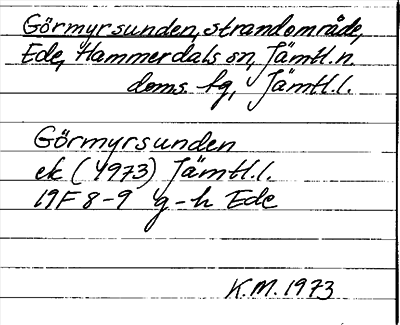 Görmyrsunden, strandområde,
Ede, Hammerdals sn, Jämtl. n.
doms. tg, Jämtl. l.
Görmyrsunden
ek (1973) Jämtl. l.
19F 8-9 g-h Ede
K.M. 1973